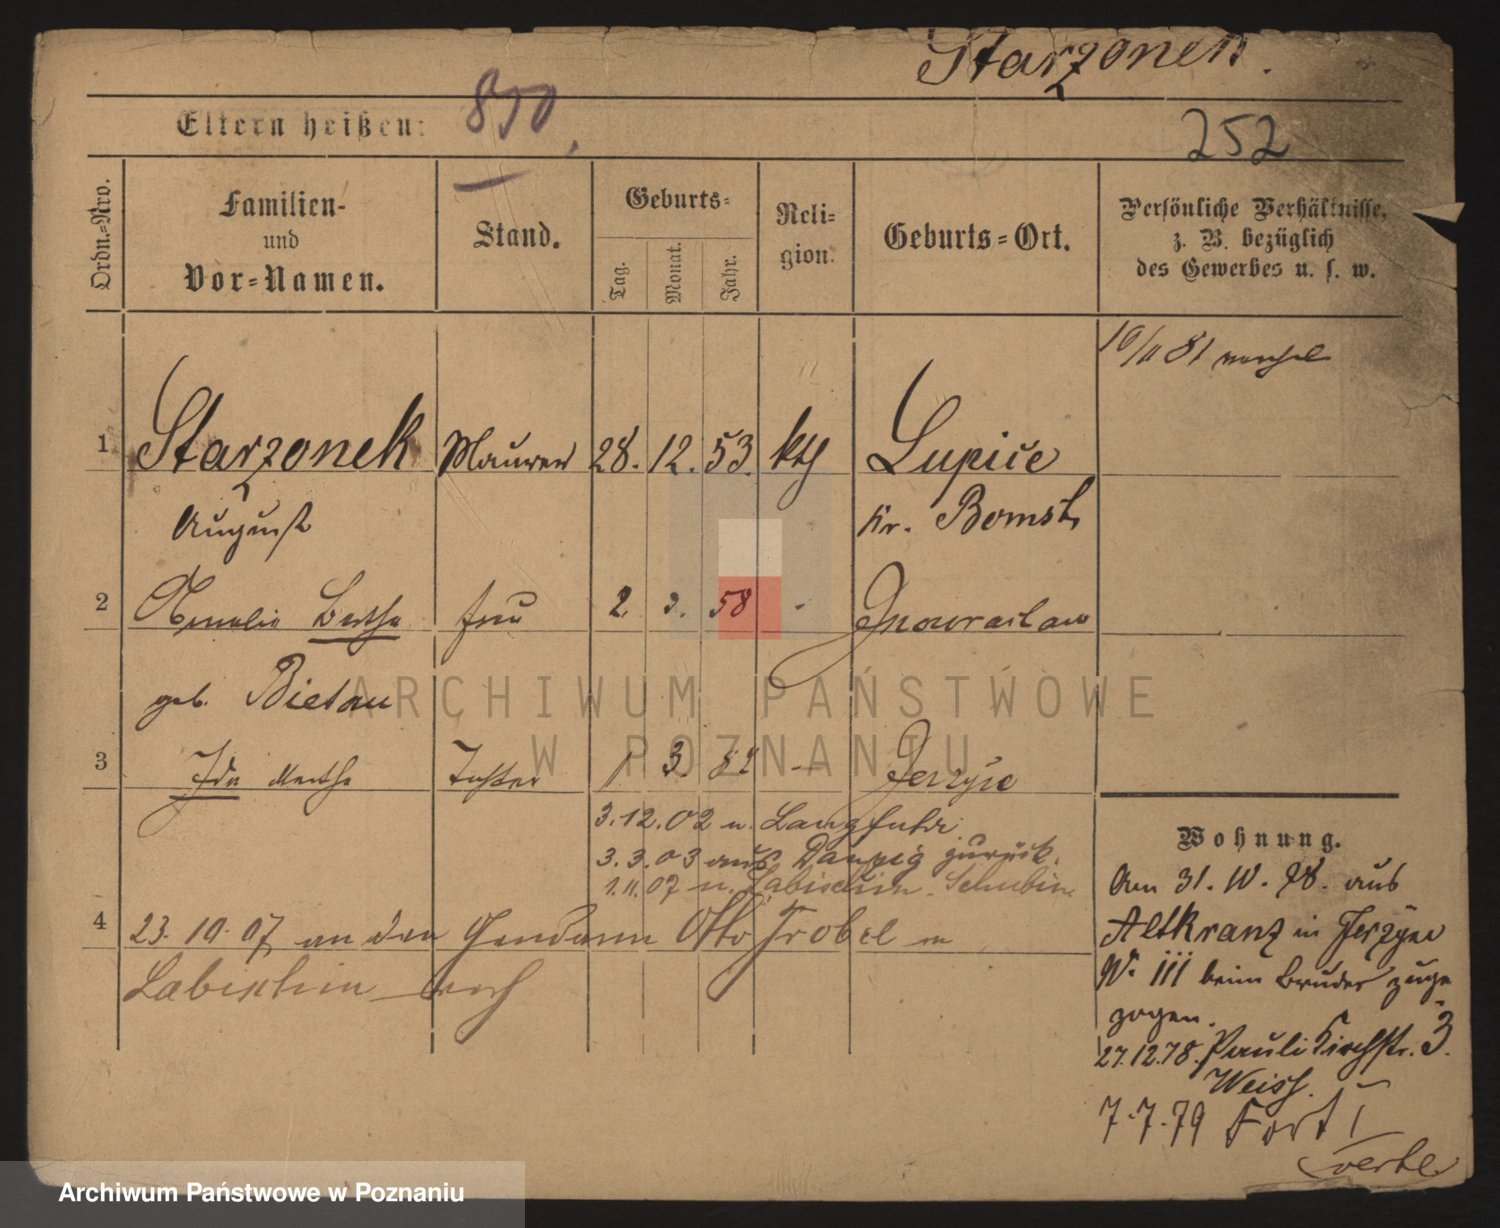 Starzonek.
Eltern heißen: 850,
252
Ordn.-Nro.
Familien-
und
Vor-Namen.
Stand.
Geburts-
Tag.
Monat.
Jahr.
Reli-
gion.
Geburts-Ort.
Persönliche Verhältnisse,
z. B. bezüglich
des Gewerbes u. s. w.
10/11 81
1 Starzonek Maurer 28. 12. 53. kth Lupice
August Kr. Bomst
2 Amalie Bertha Frau 2. 3. 58 - Inowraclaw
geb. Bietau
3 Ida Martha Tochter 1 3. 82 — Jerzyce
3.12.02 n. Langfuhr
3.3.03 aus Danzig zurück.
1.11.07 n. Labischin. Schubin
4 23.10.07 an den Gendarm Otto Frobel in
Labischin
Wohnung.
Am 31. 10. 78. aus
Altkranz in Jerzyce
No. III beim Bruder zuge
zogen.
27.12.78. Paulikirchstr. 3.
Weiss.
7.7.79 Fort I
ARCHIWUM PAŃSTWOWE
W POZNANIU
Archiwum Państwowe w Poznaniu